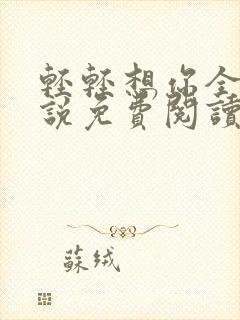 輕輕想你全
說免費閱讀
蘇绒